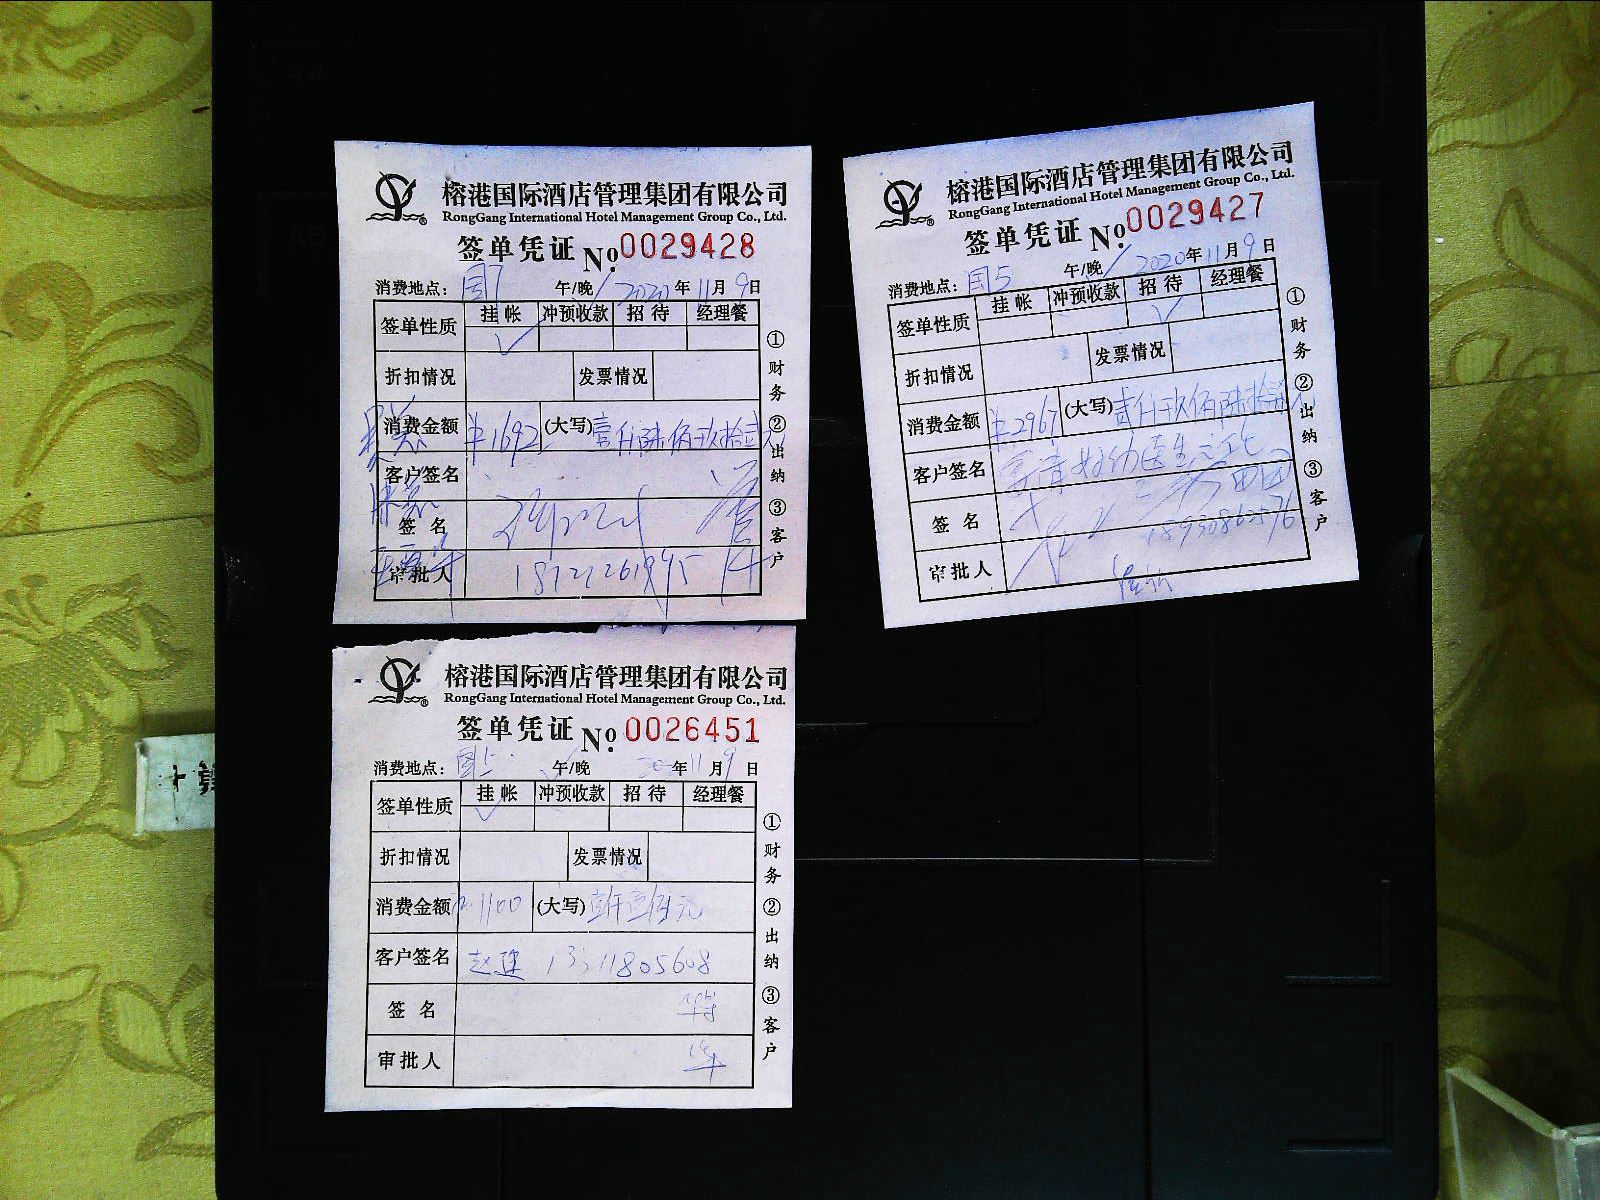 榕港国际酒店管理集团有限公司
RongGang International Hotel Management Group Co., Ltd.
签单凭证 No.0029428
消费地点：国7 午/晚 2020年11月9日
签单性质 挂帐 冲预收款 招待 经理餐
折扣情况 发票情况
消费金额 ¥1692 (大写)壹仟陆佰玖拾贰元
客户签名
签名
审批人
①财务②出纳③客户
榕港国际酒店管理集团有限公司
RongGang International Hotel Management Group Co., Ltd.
签单凭证 No.0029427
消费地点：国5 午/晚 2020年11月9日
签单性质 挂帐 冲预收款 招待 经理餐
折扣情况 发票情况
消费金额 ¥2967 (大写)贰仟玖佰陆拾柒元
客户签名
签名
审批人
①财务②出纳③客户
榕港国际酒店管理集团有限公司
RongGang International Hotel Management Group Co., Ltd.
签单凭证 No.0026451
消费地点： 午/晚 年11月9日
签单性质 挂帐 冲预收款 招待 经理餐
折扣情况 发票情况
消费金额 1100 (大写)壹仟壹佰元
客户签名
签名
审批人
①财务②出纳③客户